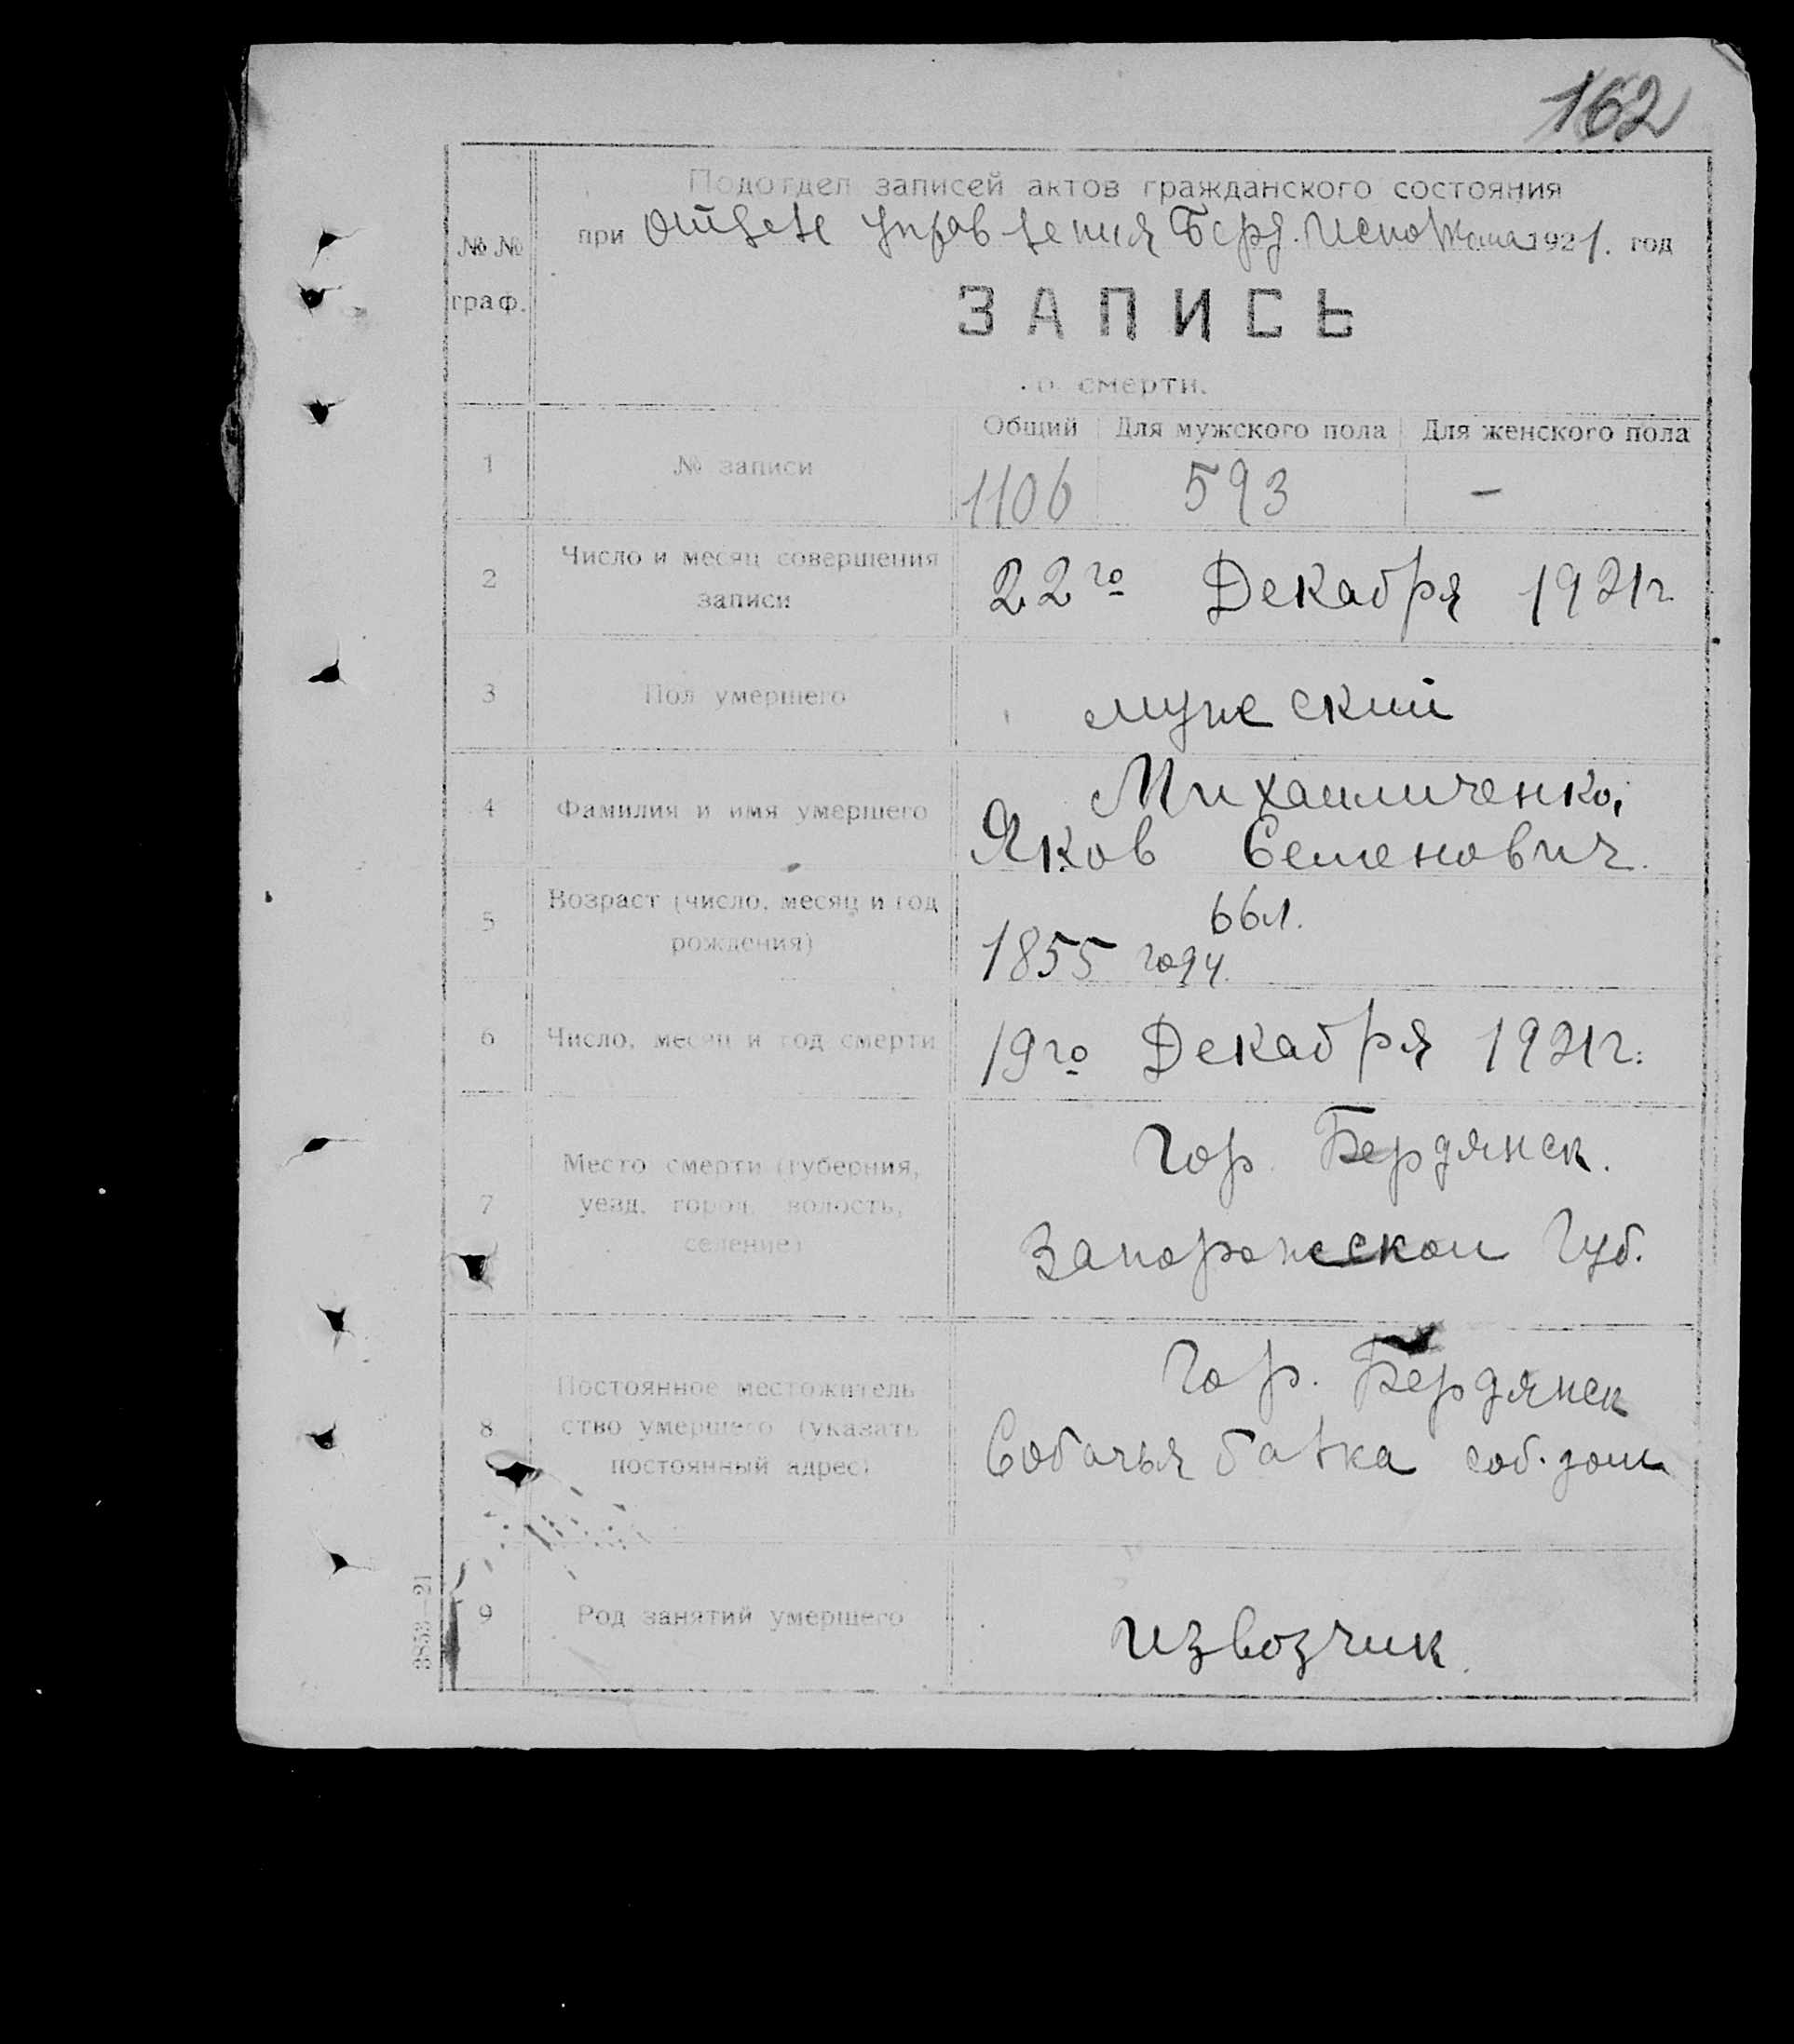 162
Подотдел записей актов гражданского состояния
при Отделе Управления Берд. Исполкома 1921. год
№№ граф.
ЗАПИСЬ
о смерти.
Общий Для мужского пола Для женского пола
1 № записи 1106 593 –
2 Число и месяц совершения записи 22го Декабря 1921г.
3 Пол умершего мужеский
4 Фамилия и имя умершего Михаиличенко,
Яков Семенович.
5 Возраст (число, месяц и год рождения) 66л.
1855 году.
6 Число, месяц и год смерти 19го Декабря 1921г.
7 Место смерти (губерния, уезд, город, волость, селение) Гор. Бердянск.
Запорожской Губ.
8 Постоянное местожитель
ство умершего (указать постоянный адрес) Гор. Бердянск
Собачья балка соб. дом
9 Род занятий умершего извозчик.
3853—21